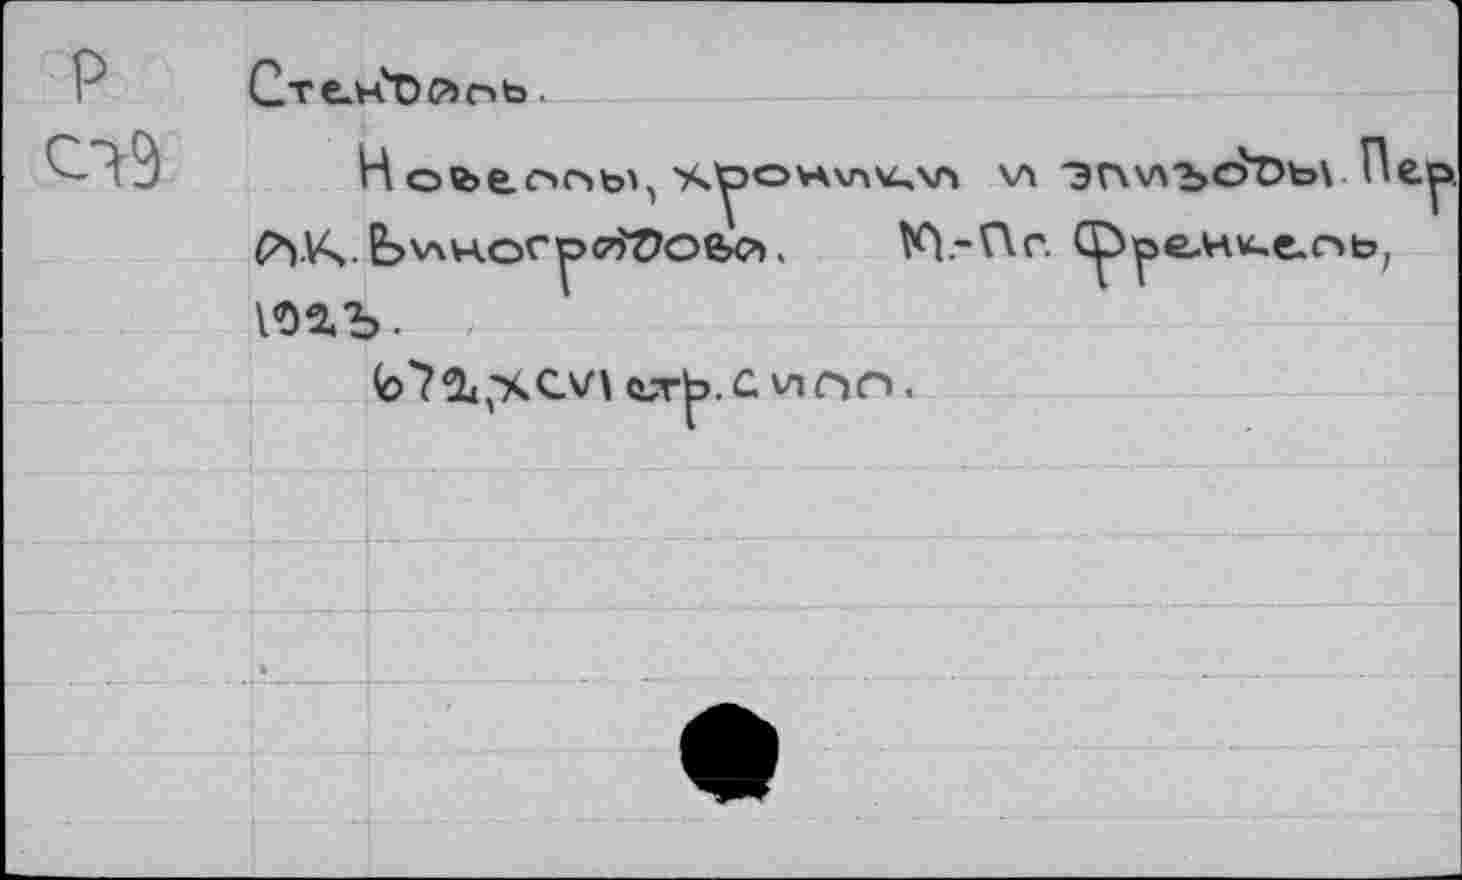 Р Стендаль.
С79 Новеллы, хроники и эпизоды. Пер.
А.К. Виноградова. М.-Пг. Френкель,
1923.
672,XCVI стр. с илл.